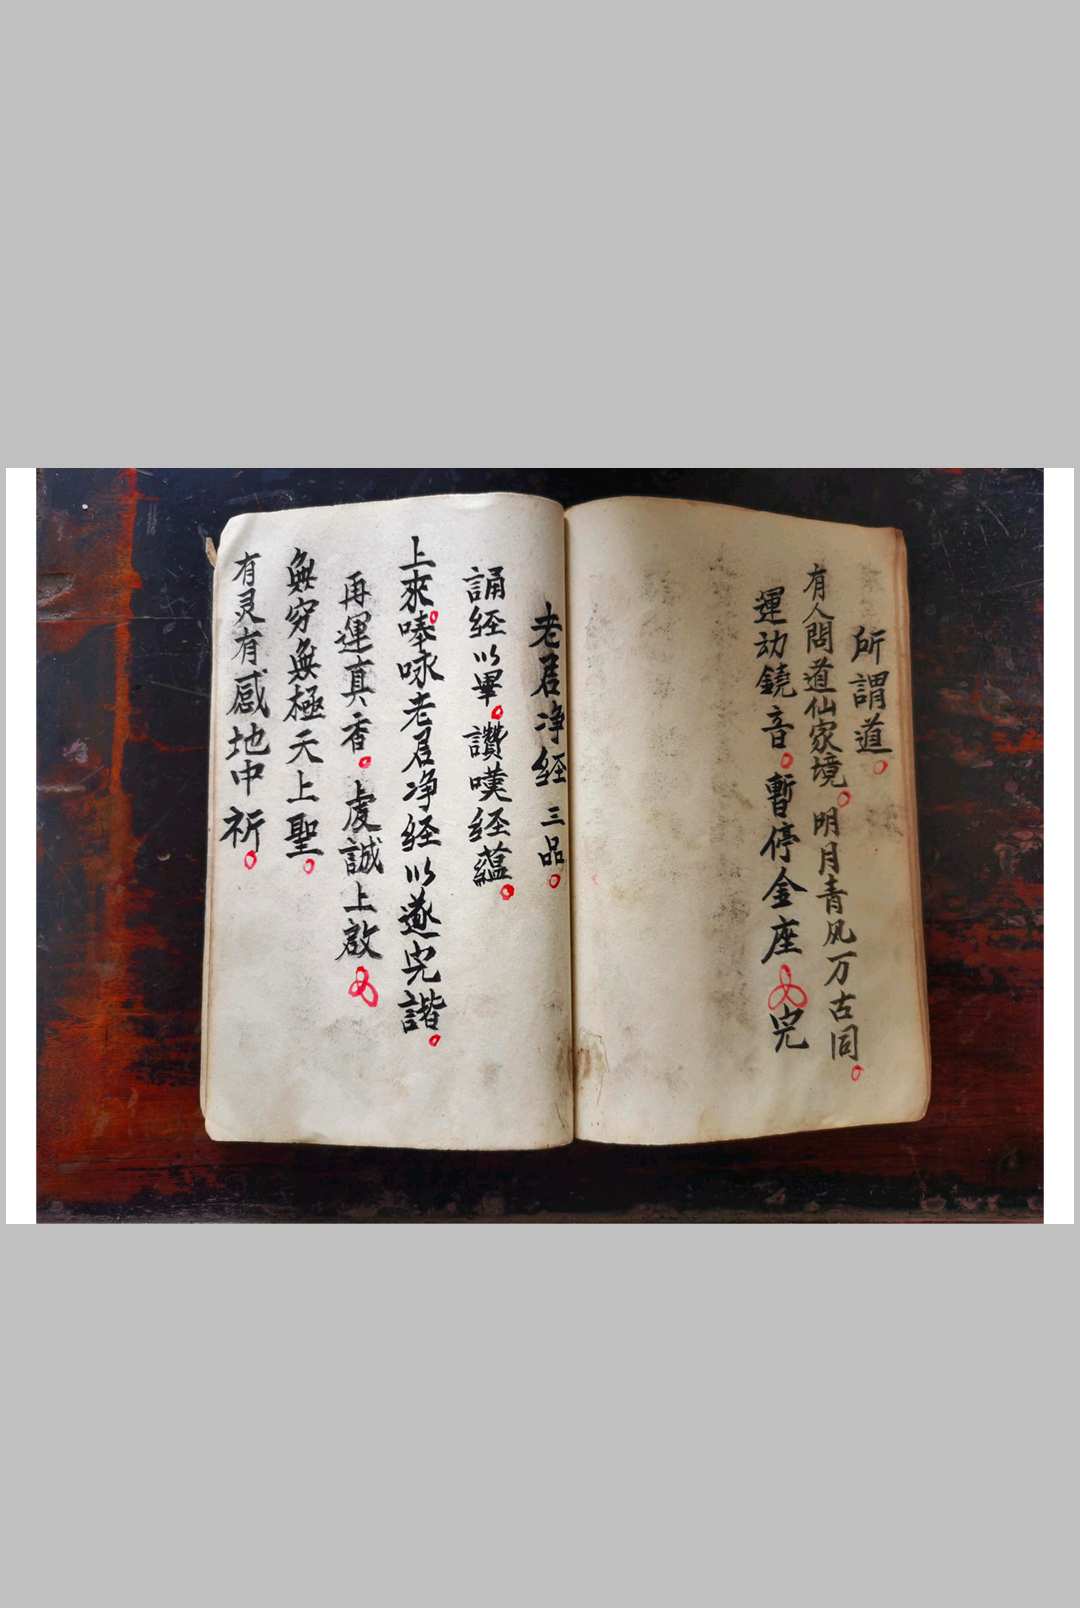 所謂道。
有人問道仙家境。明月青风万古同。
運动鐃音。暫停金座完
老君净経三品。
誦経以畢。讚嘆経蘊。
上來。唪咏老君净経以遂完諧。
再運真香。虔誠上啟
無穷無極天上聖。
有灵有感地中祈。